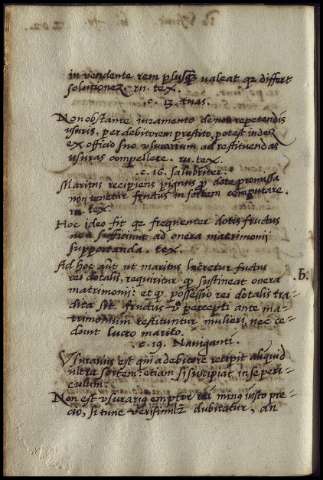 in vendente rem plusq̃ valeat q̃ differt
solutionez. ru. tex.
c. 13. tuas.
Non obstante iuramento de non repetendis
usuris, per debitorem prestito, potest iudex
ex officio suo usurarium ad restituendas
usuras compellere. ru. tex.
c. 16. salubriter.
Maritus recipiens pignus ꝓ dote promissa
non tenetur fructus in sortem computare.
ru. tex.
Hoc ideo fit q̃ frequenter dotis fructus
non sufficiunt ad onera matrimonii
supportanda. tex.
Ad hoc aũt ut maritus lucretur fructus
rei dotalis, requiritur ꝙ sustineat onera
matrimonii: et ꝙ possessio rei dotalis tra-
dita sit. fructus percepti ante ma-
trimonium restituuntur mulieri, nec ce-
dunt lucro mariti.
.b.
c. 19. Naviganti.
Usurarius est qui a debitore recipit aliquid
ultra sortem: etiam si suscipiat in se peri-
culum.
Non est usurarius emptor rei minus iusto pre-
cio, si tunc verisimiliter dubitatur, an